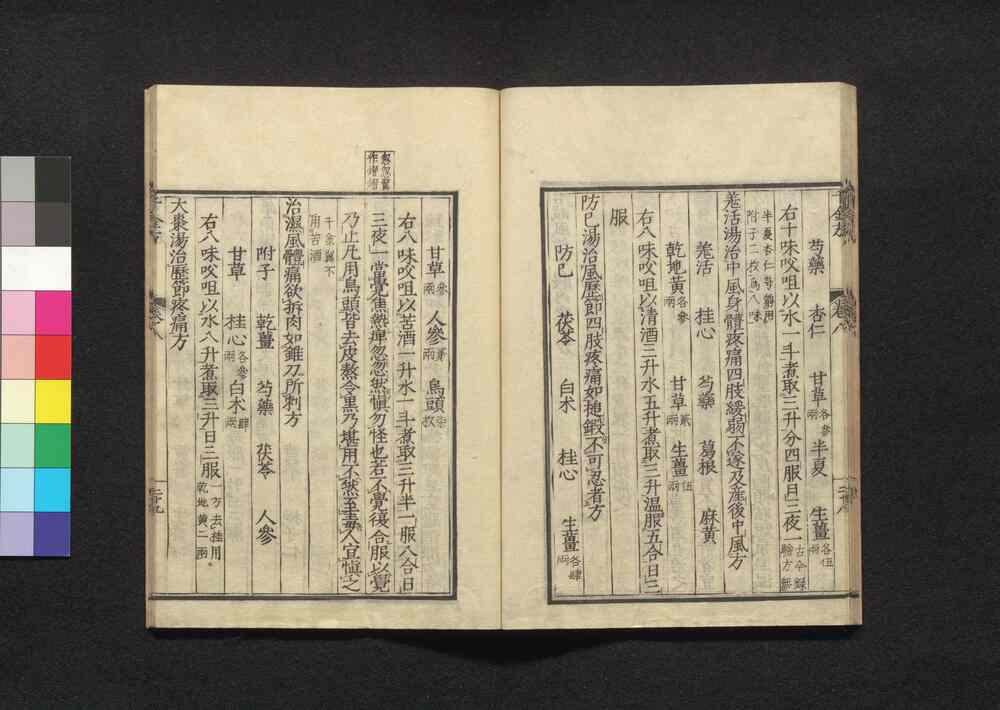 芍藥 杏仁 甘草各參兩 半夏 生薑各伍兩
右十味㕮咀以水一斗煮取三升分四服日三夜一古今錄驗方無
半夏杏仁防風用附子二枚爲八味
羌活湯治中風身體疼痛四肢緩弱不遂及產後中風方
羌活 桂心 芍藥 葛根 麻黃
乾地黃各參兩 甘草貳兩 生薑伍兩
右八味㕮咀以清酒三升水五升煮取三升溫服五合日三
服
防已湯治風歷節四肢疼痛如槌鍛不可忍者方
防已 茯苓 白术 桂心 生薑各肆兩
甘草參兩 人參貳兩 烏頭柒枚
右八味㕮咀以苦酒一升水一斗煮取三升半一服八合日
三夜一當覺焦熱痺忽忽然愼勿怪也若不覺復合服以覺
乃止凡用烏頭皆去皮熬令黑乃堪用不然至毒人宜愼之
千金翼不用苦酒
治濕風體痛欲折肉如錐刀所刺方
附子 乾薑 芍藥 茯苓 人參
甘草 桂心各參兩 白术肆兩
右八味㕮咀以水八升煮取三升日三服一方去桂用乾地黃二兩
大棗湯治歷節疼痛方
千金方 卷八 二十九